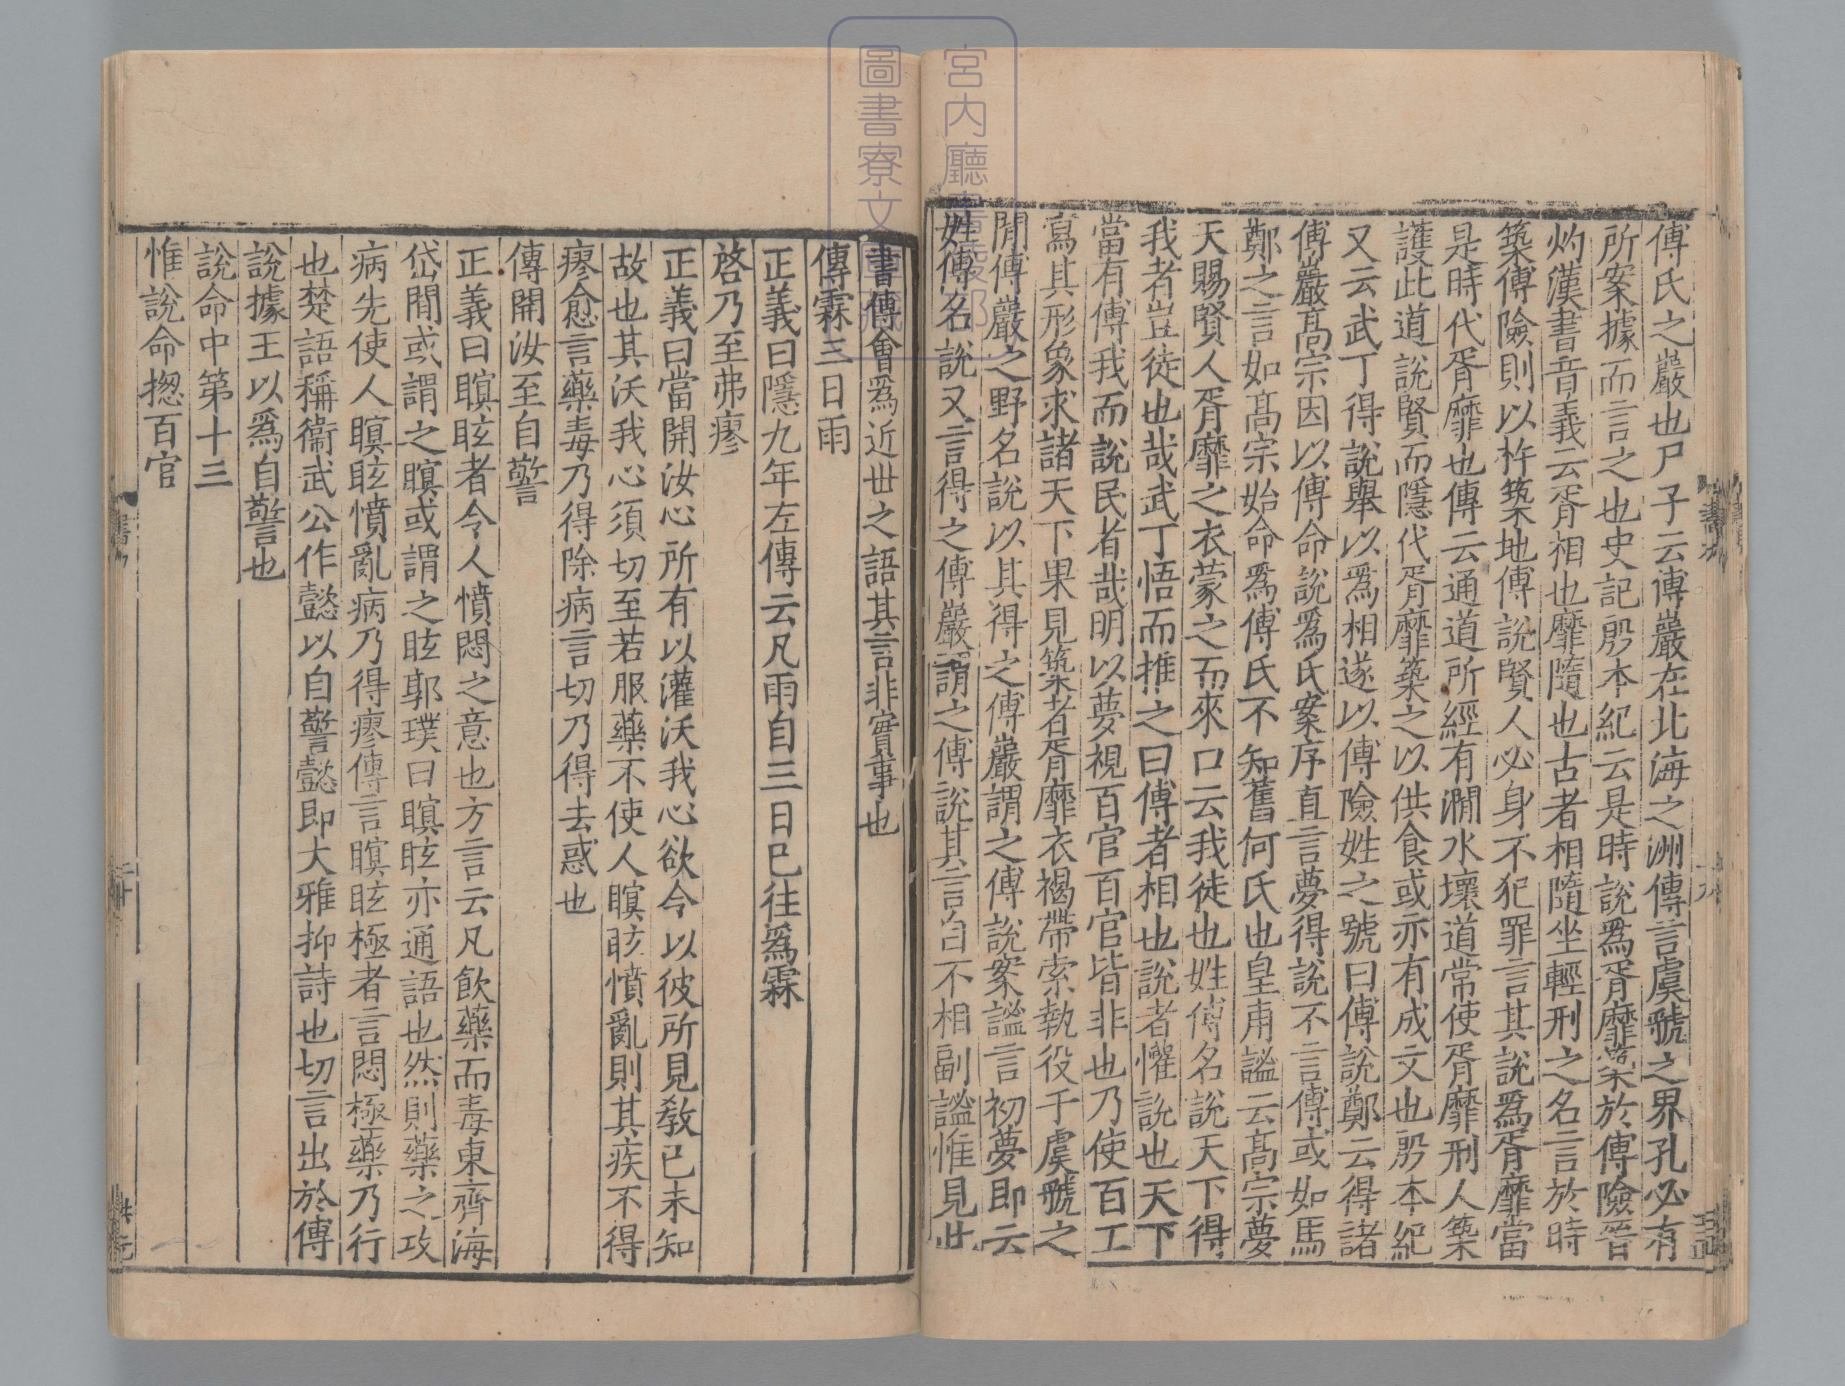 傅氏之巖也尸子云傅巖在北海之洲傳言虞虢之界孔必有
所案據而言之也史記殷本紀云是時說爲胥靡築於傅險晉
灼漢書音義云胥相也靡隨也古者相隨坐輕刑之名言於時
築傅險則以杵築地傅說賢人必身不犯罪言其說爲胥靡當
是時代胥靡也傳云通道所經有澗水壞道常使胥靡刑人築
護此道說賢而隱代胥靡築之以供食或亦有成文也殷本紀
又云武丁得說舉以爲相遂以傅險姓之號曰傅說鄭云得諸
傅巖高宗因以傅命說爲氏案序直言夢得說不言傅或如馬
鄭之言如高宗始命爲傅氏不知舊何氏也皇甫謐云高宗夢
天賜賢人胥靡之衣蒙之而來口云我徒也姓傅名說天下得
我者豈徒也哉武丁悟而推之曰傅者相也說者懽說也天下
當有傅我而說民者哉明以夢視百官百官皆非也乃使百工
寫其形象求諸天下果見築者胥靡衣褐帶索執役于虞虢之
閒傅巖之野名說以其得之傅巖謂之傅說案謐言初夢即云
姓傅名說又言得之傅巖謂之傅說其言自不相副謐惟見此
書傳會爲近世之語其言非實事也
傳霖三日雨
正義曰隱九年左傳云凡雨自三日已往爲霖
啓乃至弗瘳
正義曰當開汝心所有以灌沃我心欲令以彼所見敎已未知
故也其沃我心須切至若服藥不使人瞑眩憤亂則其疾不得
瘳愈言藥毒乃得除病言切乃得去惑也
傳開汝至自警
正義曰瞑眩者令人憤悶之意也方言云凡飲藥而毒東齊海
岱間或謂之瞑或謂之眩郭璞曰瞑眩亦通語也然則藥之攻
病先使人瞑眩憤亂病乃得瘳傳言瞑眩極者言悶極藥乃行
也楚語稱衞武公作懿以自警懿即大雅抑詩也切言出於傳
說據王以爲自警也
說命中第十三
惟說命揔百官